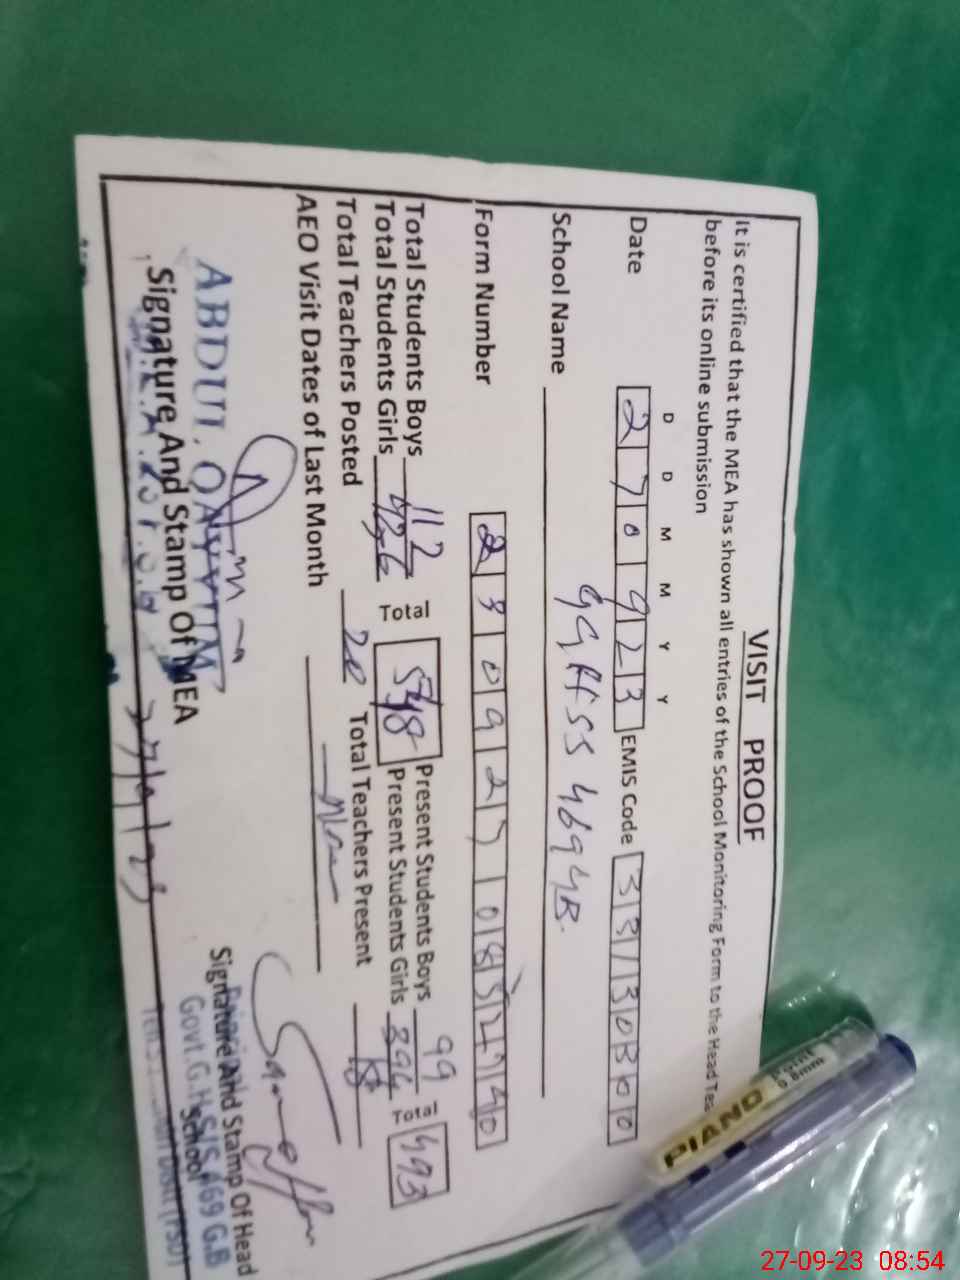 VISIT PROOF
It is certified that the MEA has shown all entries of the School Monitoring Form to the Head Tea
before its online submission
D D M M Y Y
Date 270923 EMIS Code
School Name GGHSS 469 GB.
Form Number 2309270852740
Total Students Boys 112 Total 548 Present Students Boys 99 Total 493
Total Students Girls 436 Present Students Girls 394
Total Teachers Posted 20 Total Teachers Present 18
AEO Visit Dates of Last Month
ABDUL QAYYUM
Signature And Stamp Of MEA
27/9/23
Signature And Stamp Of Head
School
Govt. G.H.S/S 469 G.B
PIANO
POINT
0.8mm
27-09-23 08:54